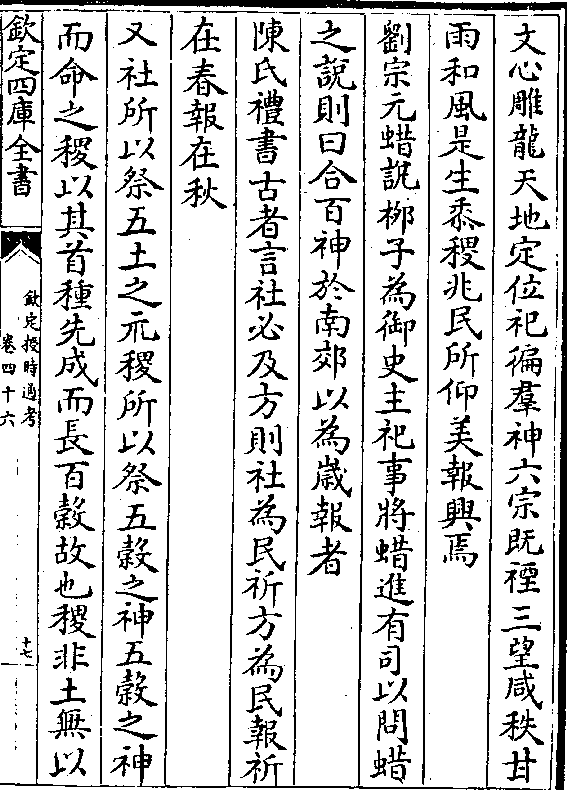 文心雕龍天地定位祀徧羣神六宗既禋三望咸秩甘
雨和風是生黍稷兆民所仰美報興焉
劉宗元蜡説栁子為御史主祀事將蜡進有司以問蜡
之說則曰合百神於南郊以為歲報者
陳氏禮書古者言社必及方則社為民祈方為民報祈
在春報在秋
又社所以祭五土之示稷所以祭五穀之神五穀之神
而命之稷以其首種先成而長百穀故也稷非土無以
欽定四庫全書
欽定授時通考
卷四十六
十七